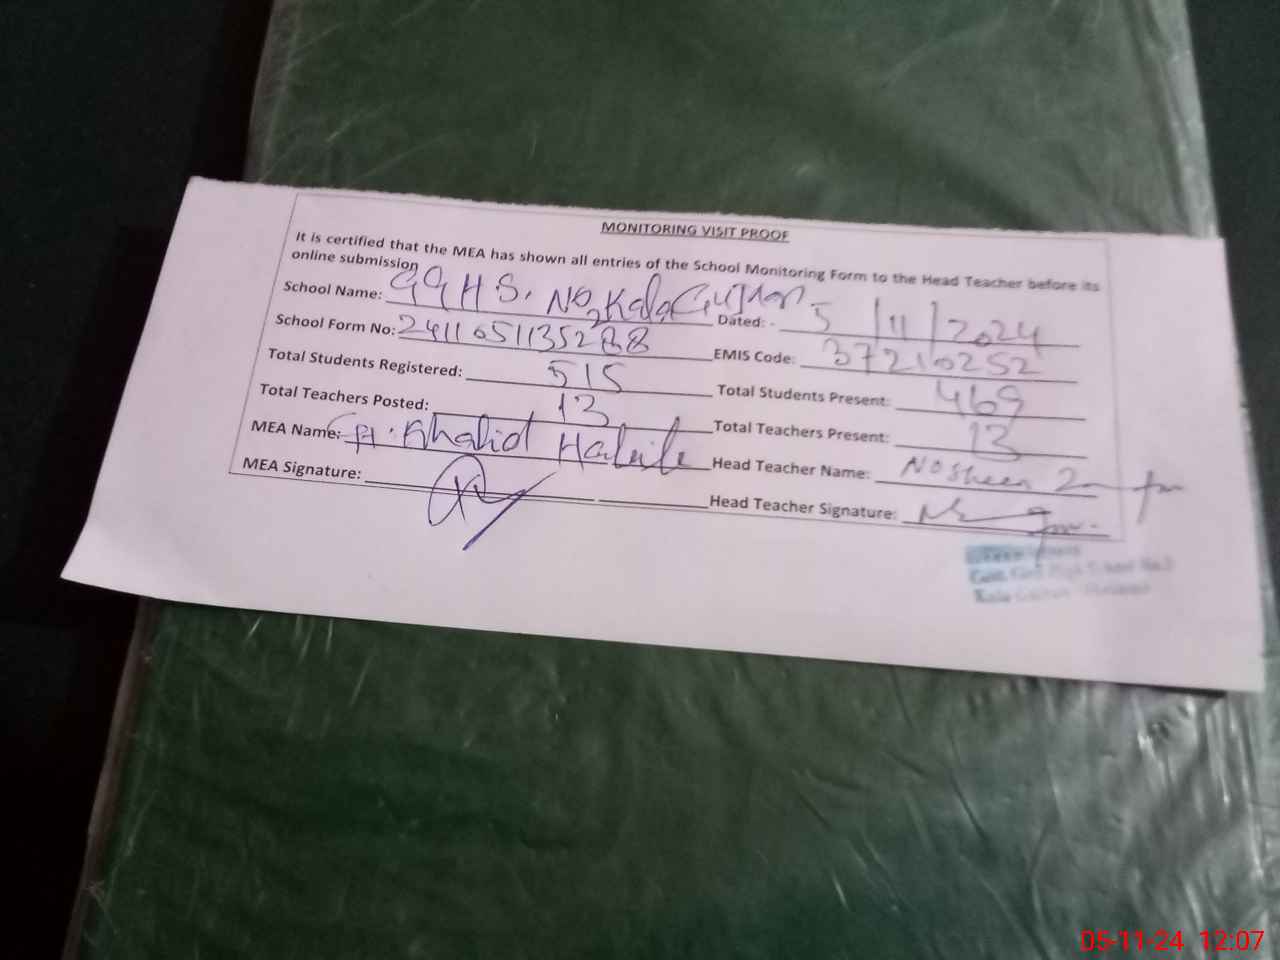 MONITORING VISIT PROOF
It is certified that the MEA has shown all entries of the School Monitoring Form to the Head Teacher before its
online submission
School Name: GGHS. No 2 Kala Gujran Dated: - 5/11/2024
School Form No: 2411651135288 EMIS Code: 37210252
Total Students Registered: 515 Total Students Present: 469
Total Teachers Posted: 13 Total Teachers Present: 13
MEA Name: Khalid Head Teacher Name: Nosheen
MEA Signature: Head Teacher Signature:
Govt. Girls High School No.2
Kala Gujran
05-11-24 12:07